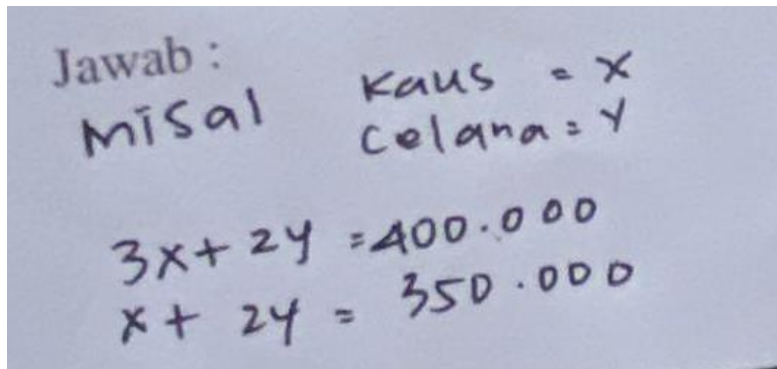 Jawab :
Misal Kaus = x
Celana = y
3x + 2y = 400.000
x + 2y = 350.000